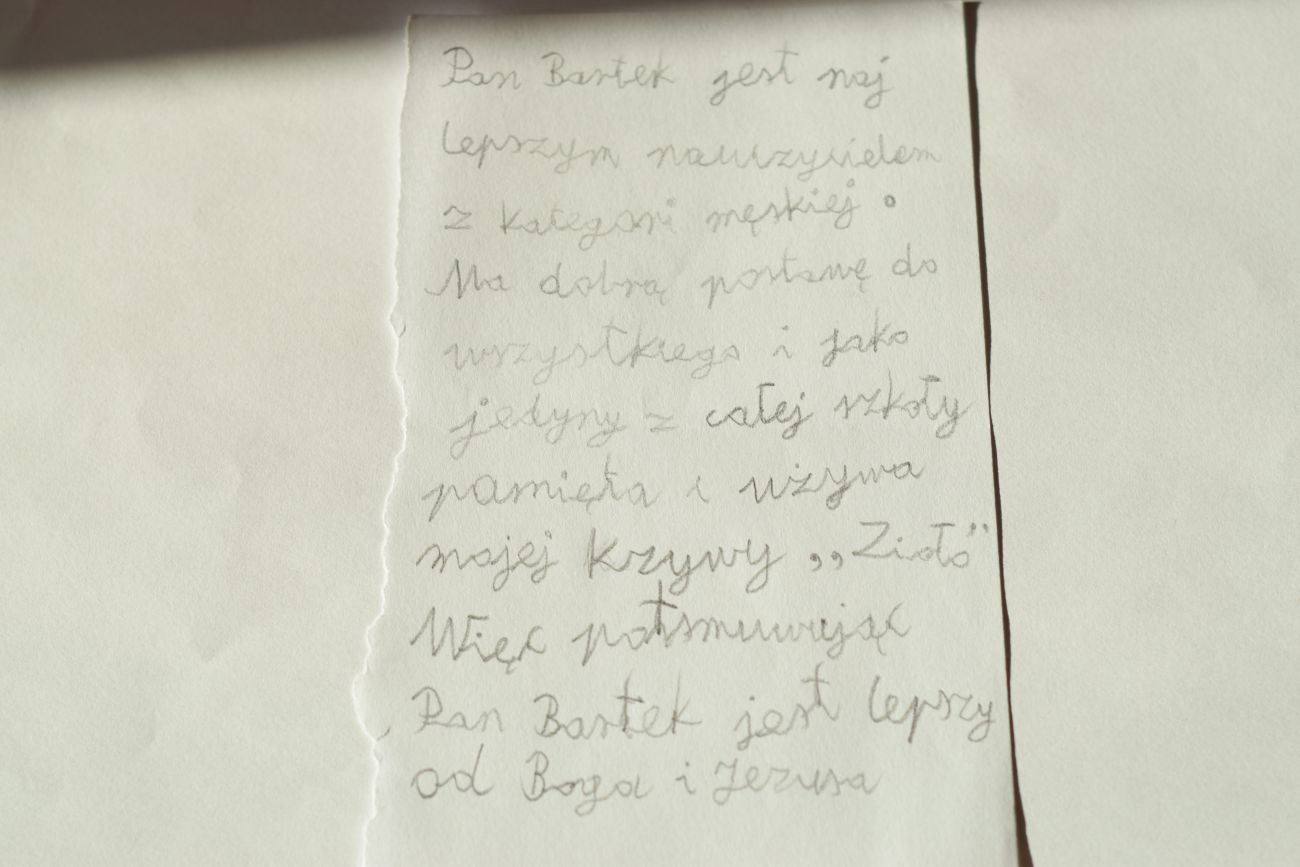 Pan Bartek jest naj
lepszym nauczycielem
z kategori męskiej .
Ma dobrą postawę do
wszystkiego i jako
jedyny z całej szkoły
pamięta i używa
mojej krzywy ,,Zioło”
Więc potsmuwując
Pan Bartek jest lepszy
od Boga i Jezusa